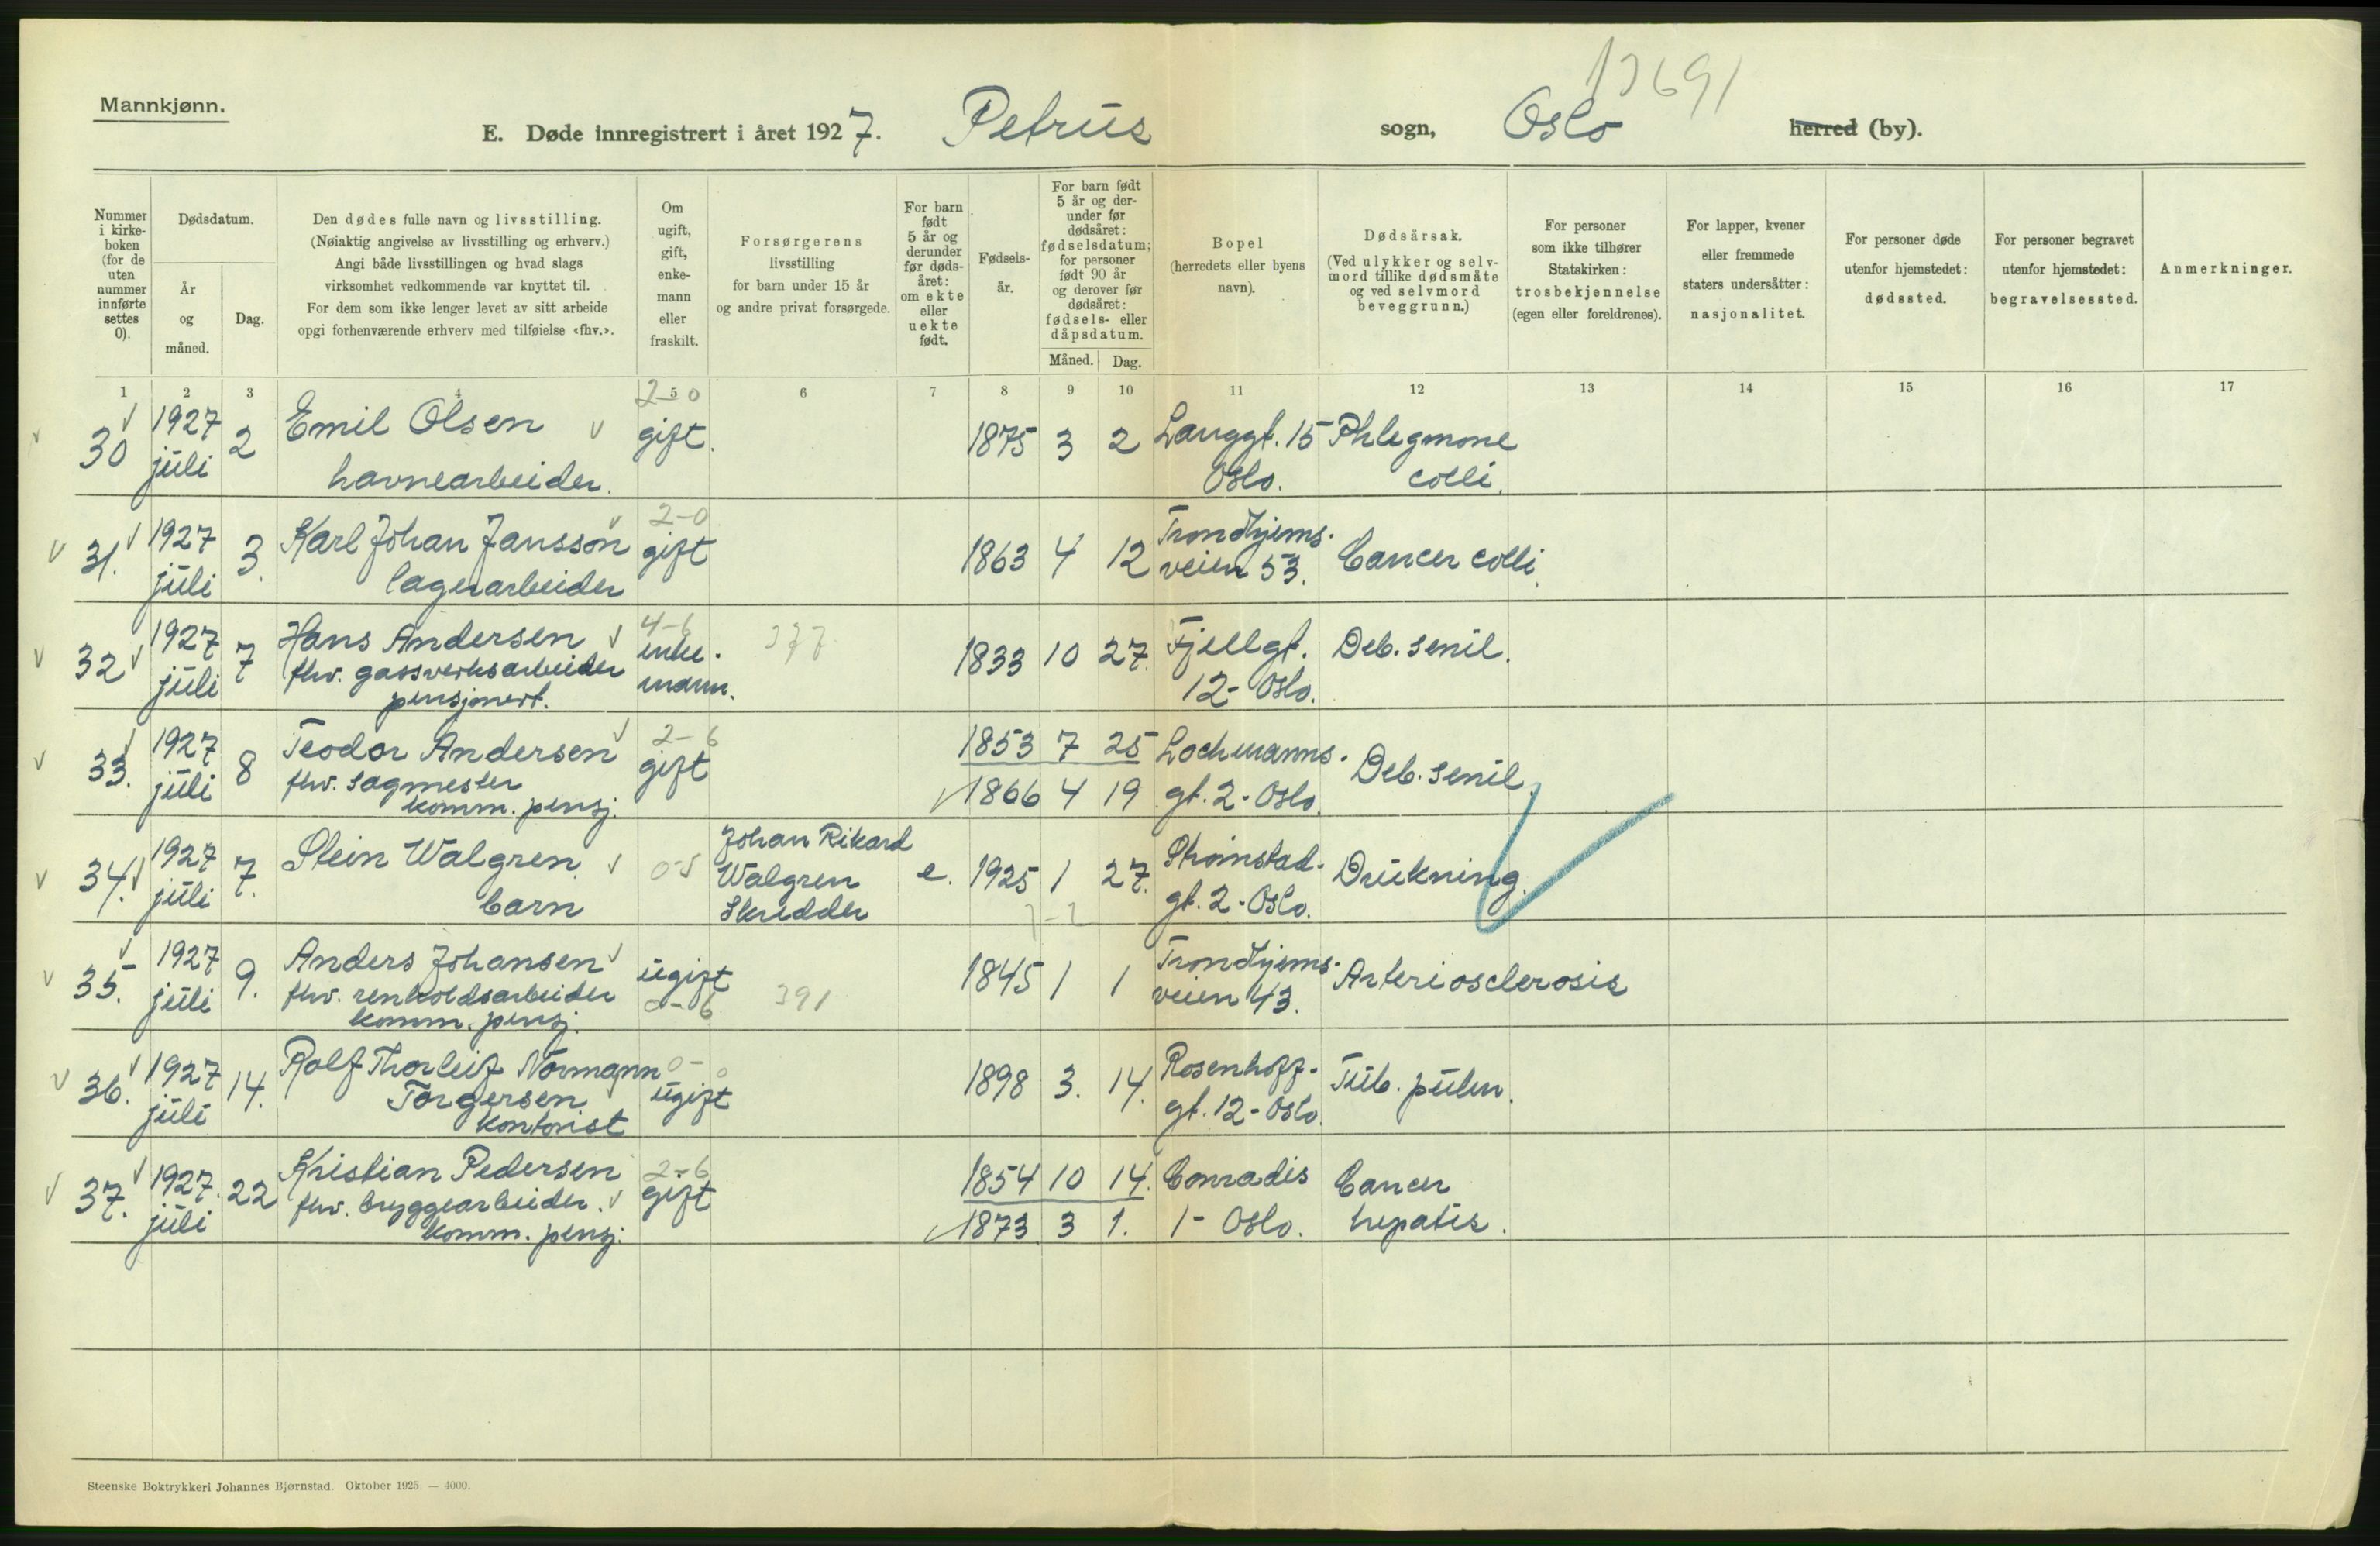 13691
Mannkjønn.
E. Døde innregistrert i året 1927. Petrus sogn, Oslo herred (by).
Nummer i kirke-boken (for de uten nummer innførte settes 0).
Dødsdatum.
År og måned.
Dag.
Den dødes fulle navn og livsstilling.
(Nøiaktig angivelse av livsstilling og erhverv.)
Angi både livsstillingen og hvad slags
virksomhet vedkommende var knyttet til.
For dem som ikke lenger levet av sitt arbeide
opgi forhenværende erhverv med tilføielse «fhv.».
Om ugift, gift, enke-mann eller fraskilt.
Forsørgerens
livsstilling
for barn under 15 år
og andre privat forsørgede.
For barn født 5 år og derunder før døds-året: om ekte eller uekte født.
Fødsels-år.
For barn født 5 år og der-under før dødsåret: fødselsdatum; for personer født 90 år og derover før dødsåret: fødsels- eller dåpsdatum.
Måned. Dag.
Bopel
(herredets eller byens
navn).
Dødsårsak.
(Ved ulykker og selv-
mord tillike dødsmåte
og ved selvmord
beveggrunn.)
For personer
som ikke tilhører
Statskirken:
trosbekjennelse
(egen eller foreldrenes).
For lapper, kvener
eller fremmede
staters undersåtter:
nasjonalitet.
For personer døde
utenfor hjemstedet:
dødssted.
For personer begravet
utenfor hjemstedet:
begravelsessted.
Anmerkninger.
1 2 3 4 5 6 7 8 9 10 11 12 13 14 15 16 17
30 1927 juli 2 Emil Olsen havnearbeider. 2-0 gift. 1875 3 2 Langgt. 15 Oslo. Phlegmone colli.
31. 1927 juli 3. Karl Johan Jansson lagerarbeider 2-0 gift 1863 4 12 Trondhjems-veien 53. Cancer colli.
32 1927 juli 7 Hans Andersen fhv. gassverksarbeider pensjonert. 4-6 enke-mann. 377 1833 10 27. Fjellgt. 12- Oslo. Deb. senil.
33. 1927 juli 8 Teodor Andersen fhv. sagmester komm. pensj. 2-6 gift 1853 7 25 1866 4 19 Lochmanns-gt. 2- Oslo. Deb. senil.
34. 1927 juli 7. Stein Walgren barn 0-5 Johan Rikard Walgren Skredder e. 1925 1 27. Strömstad-gt. 2- Oslo. Drukning.
35. 1927 juli 9. Anders Johansen fhv. renholdsarbeider komm. pensj. ugift 0-6 391 1845 1 1 Trondhjems-veien 43. Arteriosclerosis
36. 1927 juli 14. Rolf Thorleif Normann Torgersen kontorist 0-0 ugift 1898 3. 14. Rosenhoff-gt. 12- Oslo. Tub. pulm.
37. 1927. juli 22 Kristian Pedersen fhv. bryggearbeider. komm. pensj. 2-6 gift 1854 10 14. 1873. 3 1. Conradis 1- Oslo. Cancer hepatis.
Steenske Boktrykkeri Johannes Bjørnstad. Oktober 1925. — 4000.